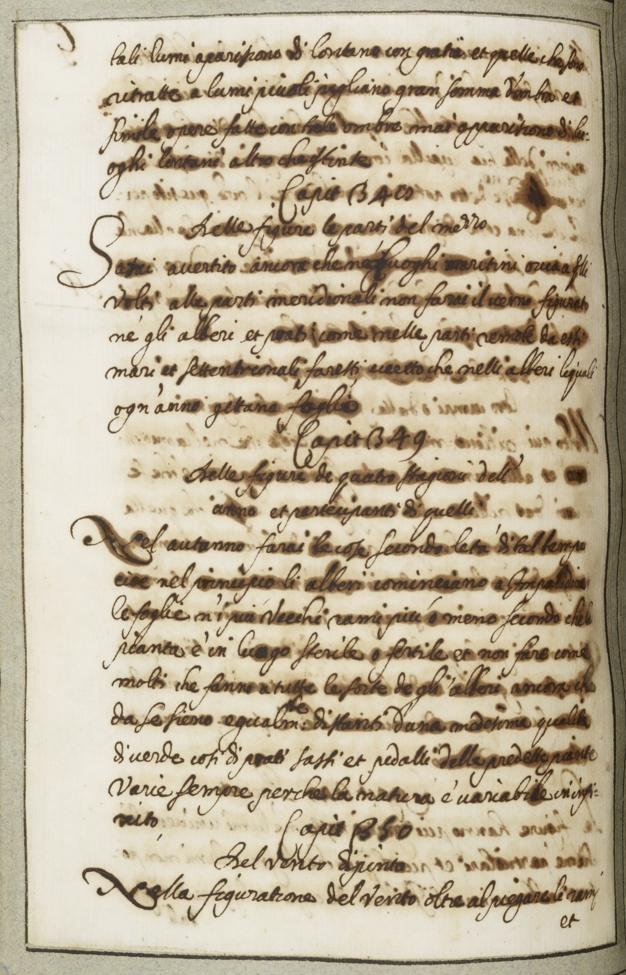 tali lumi aparischono di lontano con gratia et quelle che sono
ritratte a lumi picoli pigliano gran somma d'ombre et
simile opere fatte con tale ombre mai apparischono di lu-
oghi lontani altro che tinte
Capit 348
Delle figure le parti del mezzo
Sarai avertito ancora che ne luoghi maritini o vicin a gli
volti alle parti meridionali non farai il verno figurato
ne gli alberi et prati come nelle parti remote da esti
mari et settentrionali faresti eccetto che nelli alberi liquali
ogn'anno gittano foglie
Capit 349
Delle figure de quatro stagioni dell'
anno et partecipanti di quelli
Nel autanno farai le cose secondo l'eta di tal tempo
cioe nel principio li alberi cominciano a Impalidire
le foglie n'i piu vecchi rami piu o meno secondo che la
pianta è in luogo sterile o fertile et non fare come
molti che fanno a tutte le sorte de gli alberi ancora che
da se sieno egualmte distanti d'una medesima qualita
di verde cosi di prati sassi et pedalli delle predette piante
varie sempre perche la natura è variabile in infi-
nito
Capit 350
Del vento dipinto
Nella figuratione del vento oltre al piegare li rami
et